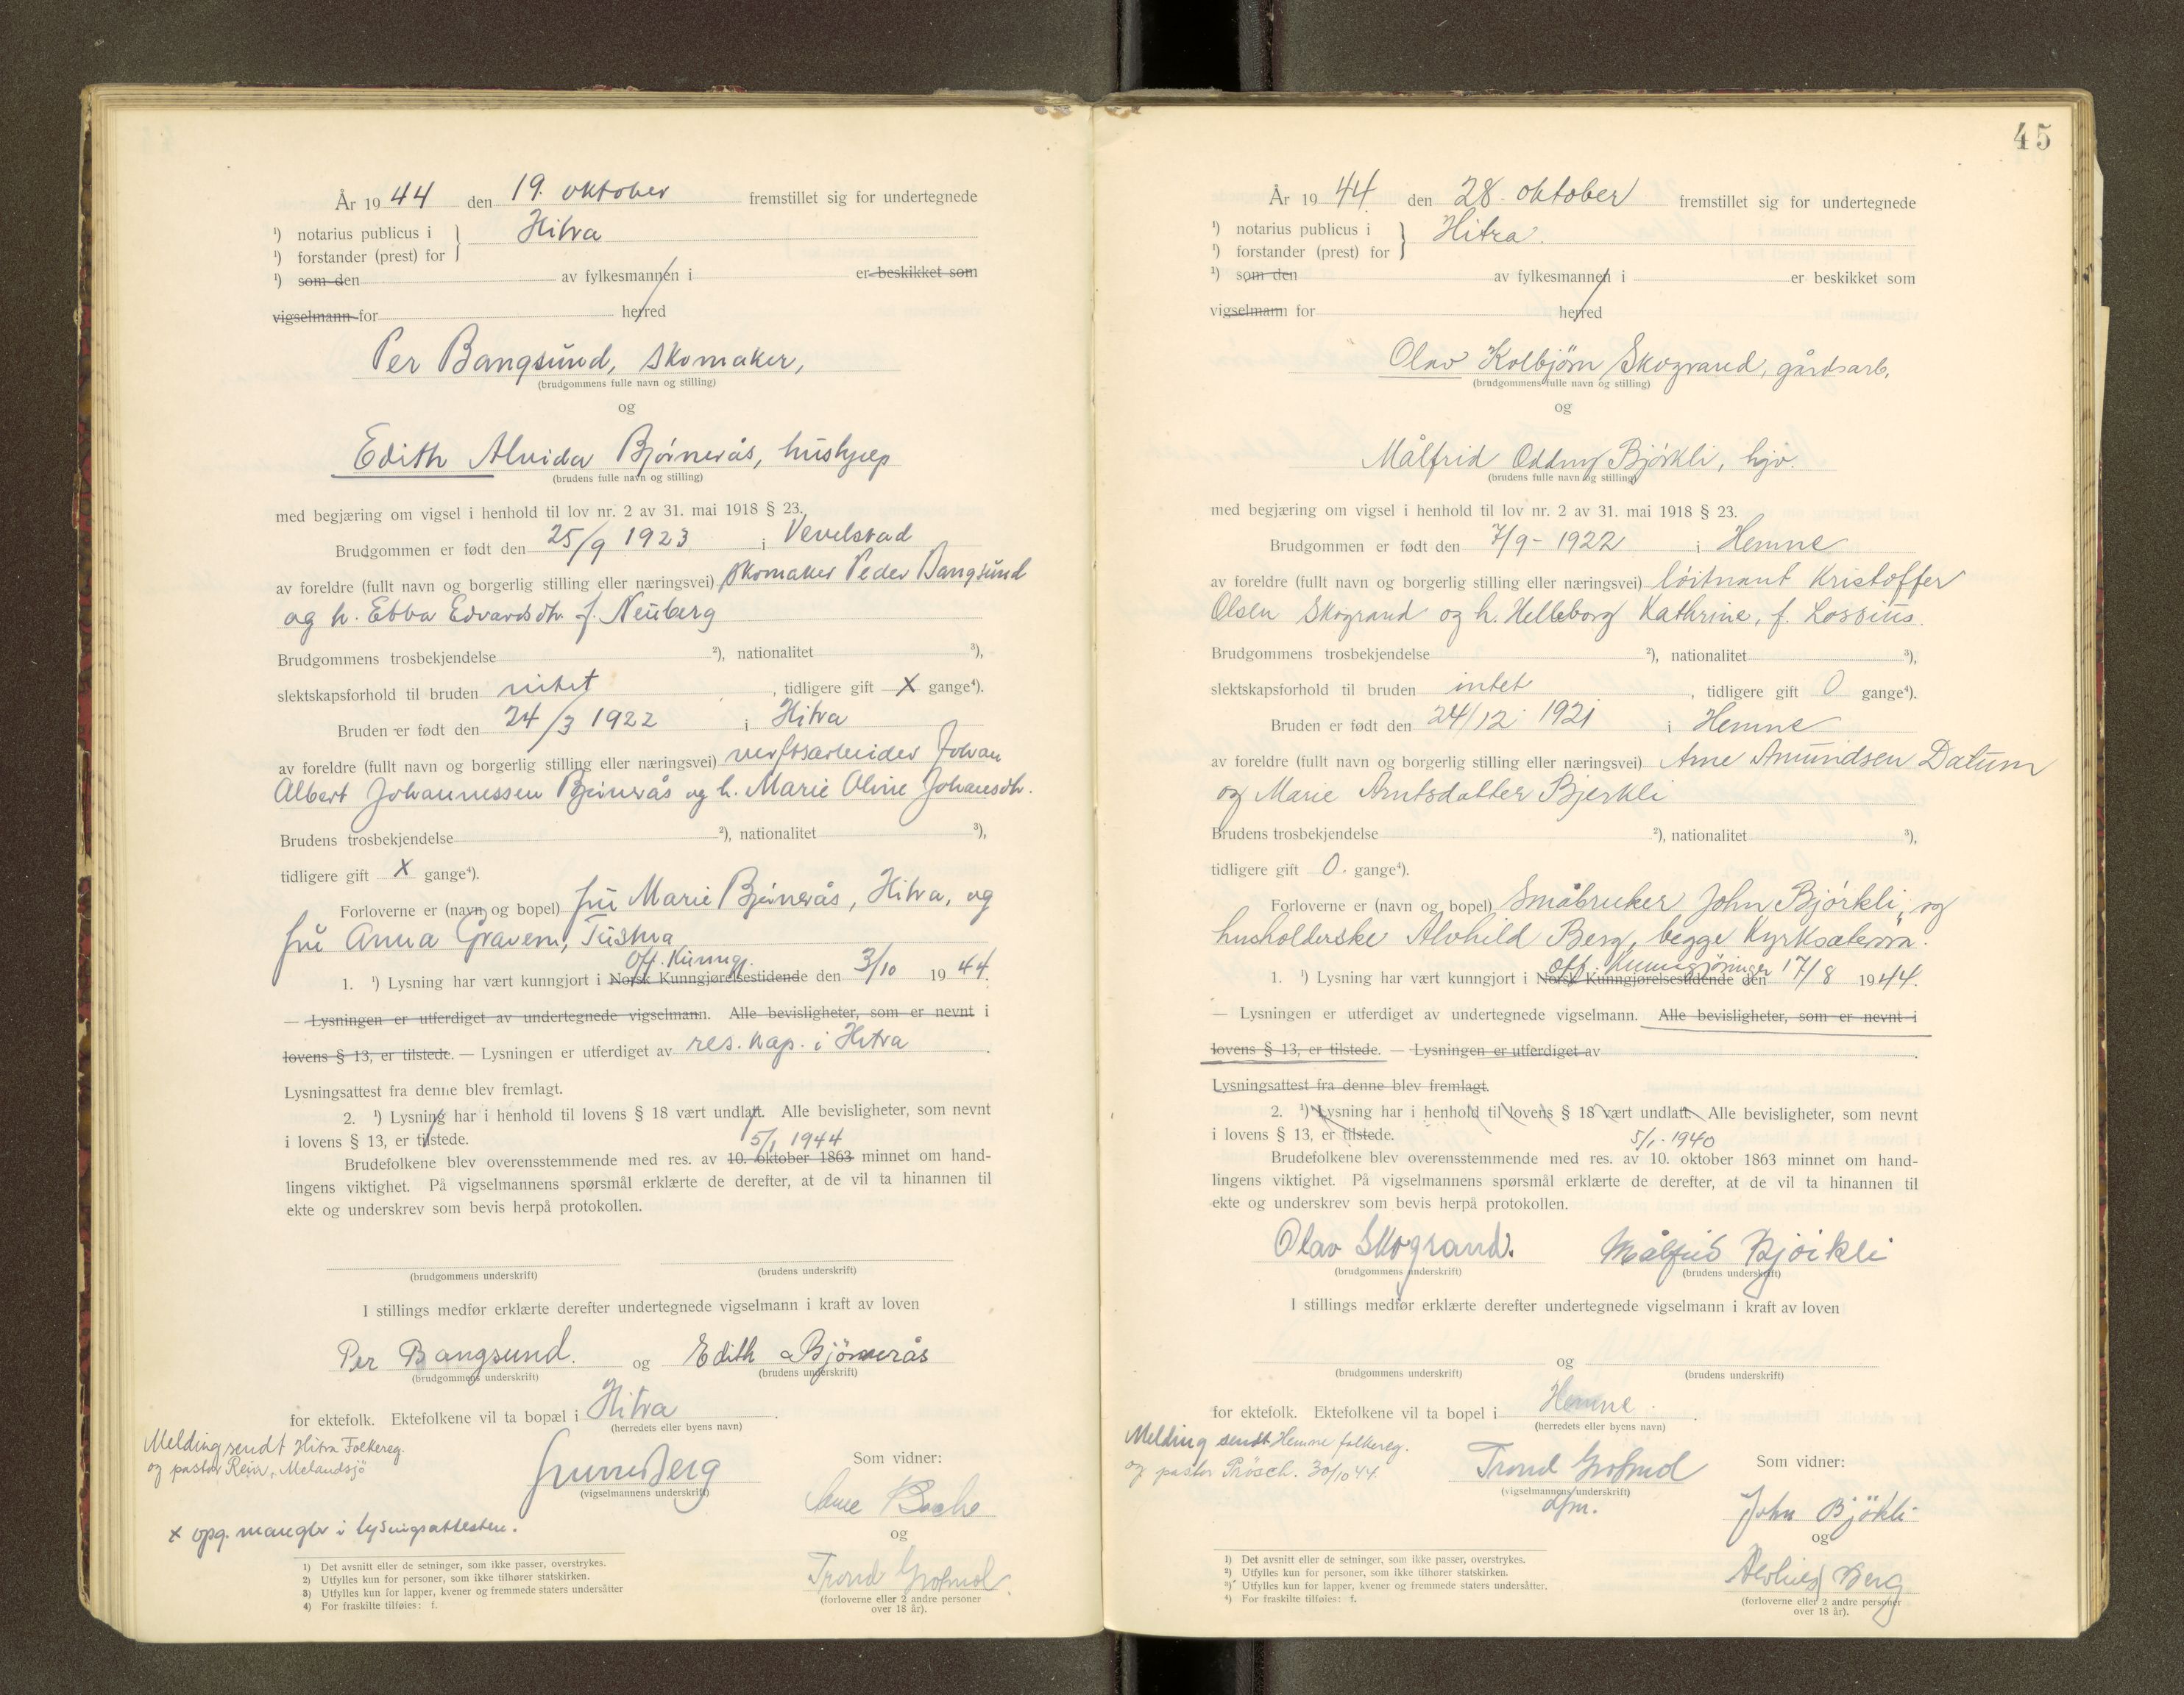 År 19 44 den 19. oktober fremstillet sig for undertegnede
¹) notarius publicus i } Hitra
¹) forstander (prest) for
¹) som den av fylkesmannen i er beskikket som
vigselmann for herred
Per Bangsund, skomaker,
(brudgommens fulle navn og stilling)
og
Edith Alvida Bjørnerås, hushjelp
(brudens fulle navn og stilling)
med begjæring om vigsel i henhold til lov nr. 2 av 31. mai 1918 § 23.
Brudgommen er født den 25/9 1923 i Vevelstad
av foreldre (fullt navn og borgerlig stilling eller næringsvei) skomaker Peder Bangsund
og h. Ebba Edvardsdtr. f. Neuberg
Brudgommens trosbekjendelse ²), nationalitet ³),
slektskapsforhold til bruden intet , tidligere gift X gange⁴).
Bruden er født den 24/3 1922 i Hitra
av foreldre (fullt navn og borgerlig stilling eller næringsvei) verftsarbeider Johan
Albert Johannessen Bjørnerås og h. Marie Oline Johansdtr.
Brudens trosbekjendelse ²), nationalitet ³),
tidligere gift X gange⁴).
Forloverne er (navn og bopel) fru Marie Bjørnerås, Hitra, og
fru Anna Gravem, Tustna
Off. Kunngj.
1. ¹) Lysning har vært kunngjort i Norsk Kunngjørelsestidende den 3/10 19 44.
— Lysningen er utferdiget av undertegnede vigselmann. Alle bevisligheter, som er nevnt i
lovens § 13, er tilstede. — Lysningen er utferdiget av res. kap. i Hitra .
Lysningsattest fra denne blev fremlagt.
2. ¹) Lysning har i henhold til lovens § 18 vært undlatt. Alle bevisligheter, som nevnt
i lovens § 13, er tilstede. 5/1 1944
Brudefolkene blev overensstemmende med res. av 10. oktober 1863 minnet om hand-
lingens viktighet. På vigselmannens spørsmål erklærte de derefter, at de vil ta hinannen til
ekte og underskrev som bevis herpå protokollen.
(brudgommens underskrift) (brudens underskrift)
I stillings medfør erklærte derefter undertegnede vigselmann i kraft av loven
Per Bangsund. og Edith Bjørnerås
(brudgommens underskrift) (brudens underskrift)
for ektefolk. Ektefolkene vil ta bopæl i Hitra .
(herredets eller byens navn)
Melding sendt Hitra Folkereg.
og pastor Rein, Melandsjö
Som vidner:
(vigselmannens underskrift)
x opg. mangler i lysningsattesten.
og
Trond
(forloverne eller 2 andre personer
over 18 år).
1) Det avsnitt eller de setninger, som ikke passer, overstrykes.
2) Utfylles kun for personer, som ikke tilhører statskirken.
3) Utfylles kun for lapper, kvener og fremmede staters undersåtter
4) For fraskilte tilføies: f.
45
År 19 44. den 28. oktober fremstillet sig for undertegnede
¹) notarius publicus i } Hitra.
¹) forstander (prest) for
¹) som den av fylkesmannen i er beskikket som
vigselmann for herred
Olav Kolbjörn Skogrand, gårdsarb.
(brudgommens fulle navn og stilling)
og
Målfrid Oddny Bjórkli, hjv.
(brudens fulle navn og stilling)
med begjæring om vigsel i henhold til lov nr. 2 av 31. mai 1918 § 23.
Brudgommen er født den 7/9 - 1922 i Hemne
av foreldre (fullt navn og borgerlig stilling eller næringsvei) löitnant Kristoffer
Olsen Skogrand og h. Helleborg Kathrine, f. Lossius.
Brudgommens trosbekjendelse ²), nationalitet ³),
slektskapsforhold til bruden intet , tidligere gift 0 gange⁴).
Bruden er født den 24/12 1921 i Hemne
av foreldre (fullt navn og borgerlig stilling eller næringsvei) Arne Amundsen Dalum
og Marie Arntsdatter Bjerkli
Brudens trosbekjendelse ²), nationalitet ³),
tidligere gift 0. gange⁴).
Forloverne er (navn og bopel) Småbruker John Bjørkli, og
husholderske Alvhild Berg, begge Kyrksæterøra.
off. kunngjöringer
1. ¹) Lysning har vært kunngjort i Norsk Kunngjørelsestidende den 17/8 1944.
— Lysningen er utferdiget av undertegnede vigselmann. Alle bevisligheter, som er nevnt i
lovens § 13, er tilstede. — Lysningen er utferdiget av .
Lysningsattest fra denne blev fremlagt.
2. ¹) Lysning har i henhold til lovens § 18 vært undlatt. Alle bevisligheter, som nevnt
i lovens § 13, er tilstede. 5/1.-1940
Brudefolkene blev overensstemmende med res. av 10. oktober 1863 minnet om hand-
lingens viktighet. På vigselmannens spørsmål erklærte de derefter, at de vil ta hinannen til
ekte og underskrev som bevis herpå protokollen.
Olav Skogrand. Målfrid Bjørkli
(brudgommens underskrift) (brudens underskrift)
I stillings medfør erklærte derefter undertegnede vigselmann i kraft av loven
og
(brudgommens underskrift) (brudens underskrift)
for ektefolk. Ektefolkene vil ta bopel i Hemne .
(herredets eller byens navn)
Melding sendt Hemne folkereg.
og pastor Prösch. 30/10 44.
Trond
Som vidner:
(vigselmannens underskrift)
dfm.
John Bjökli
og
Alvhild Berg
(forloverne eller 2 andre personer
over 18 år).
¹) Det avsnitt eller de setninger, som ikke passer, overstrykes.
²) Utfylles kun for personer, som ikke tilhører statskirken.
³) Utfylles kun for lapper, kvener og fremmede staters undersåtter.
⁴) For fraskilte tilføies: f.